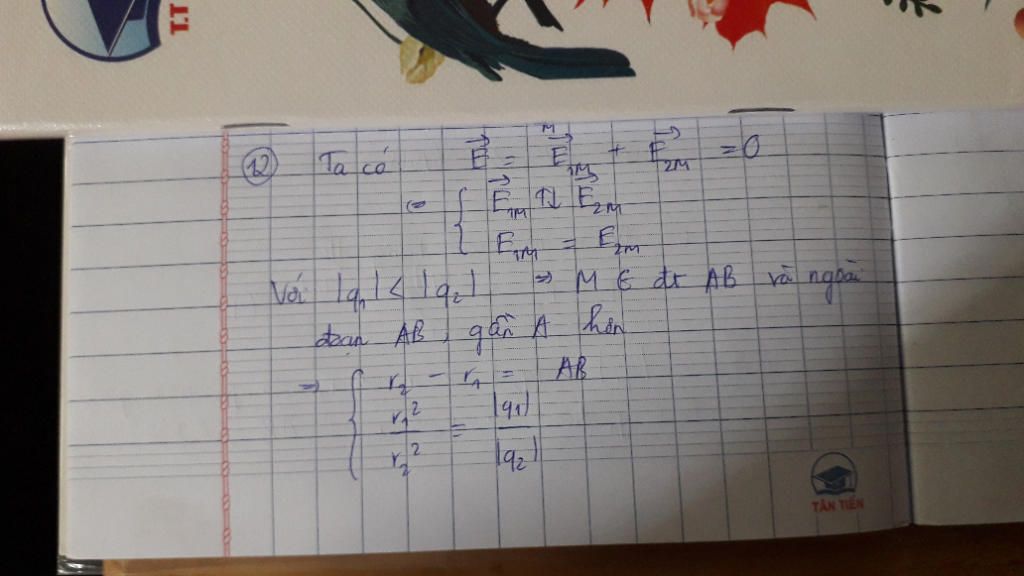 T.T
⑫ Ta có $\vec{E}_M = \vec{E}_{1M} + \vec{E}_{2M} = 0$
⇔ { $\vec{E}_{1M}$ ↑↓ $\vec{E}_{2M}$
$E_{1M} = E_{2M}$
Với |q₁| < |q₂| ⇒ M ∈ đt AB và ngoài
đoạn AB, gần A hơn
⇒ { r₂ - r₁ = AB
$\frac{r_1^2}{r_2^2} = \frac{|q_1|}{|q_2|}$
TÂN TIẾN